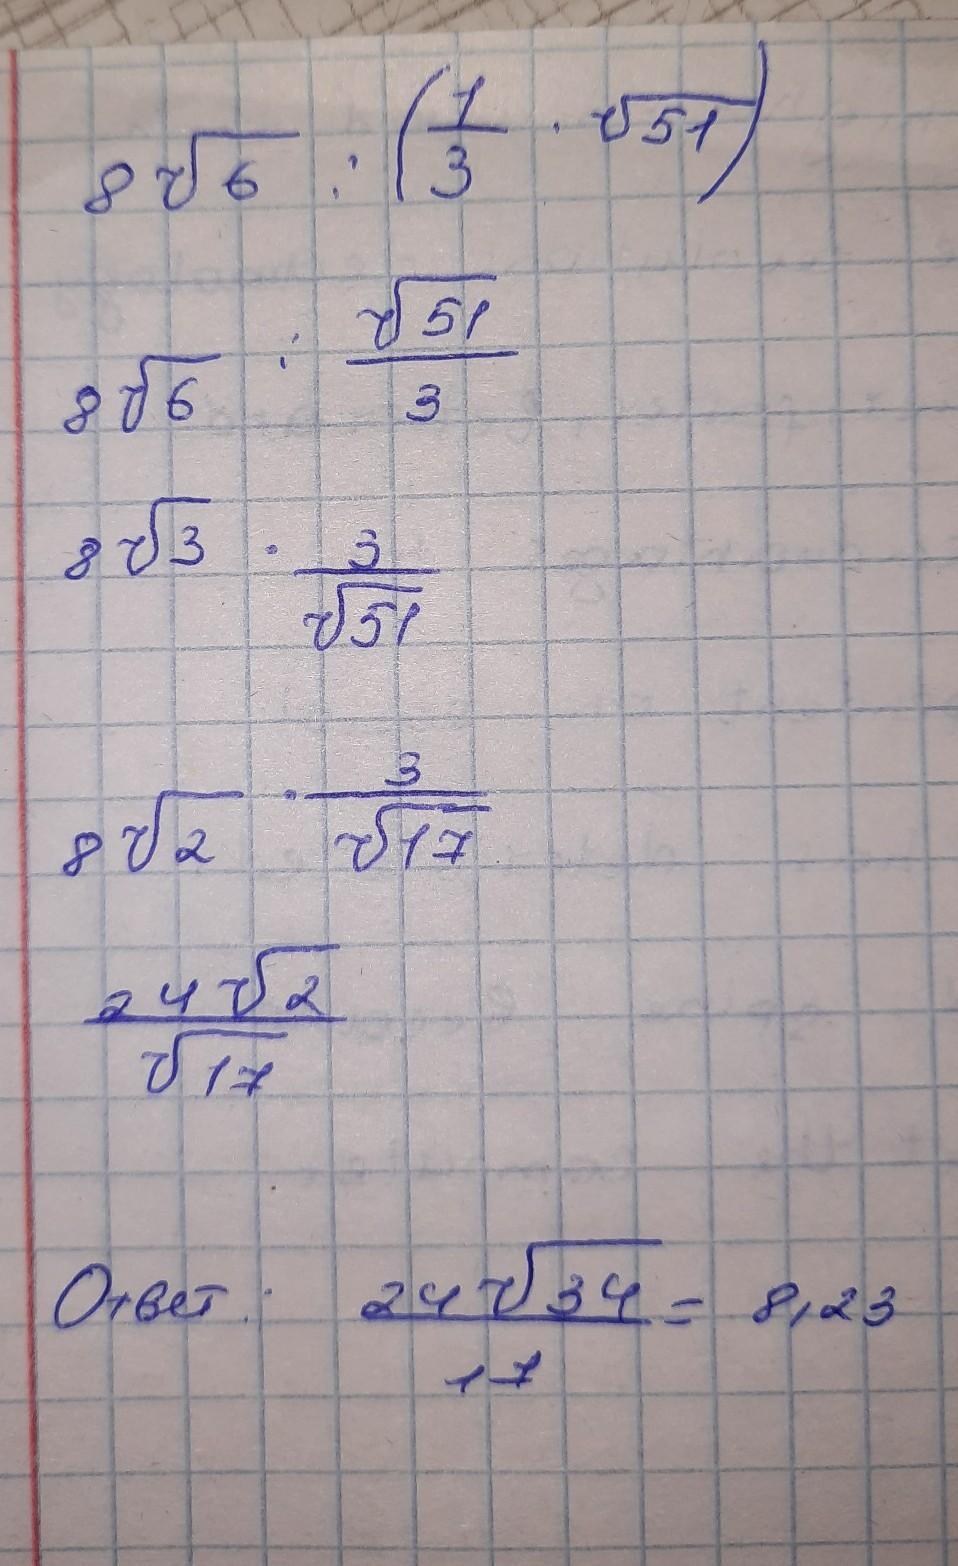 8√6 : (1/3 · √51)
8√6 : √51/3
8√3 · 3/√51
8√2 · 3/√17
24√2/√17
Ответ: 24√34/17 = 8,23